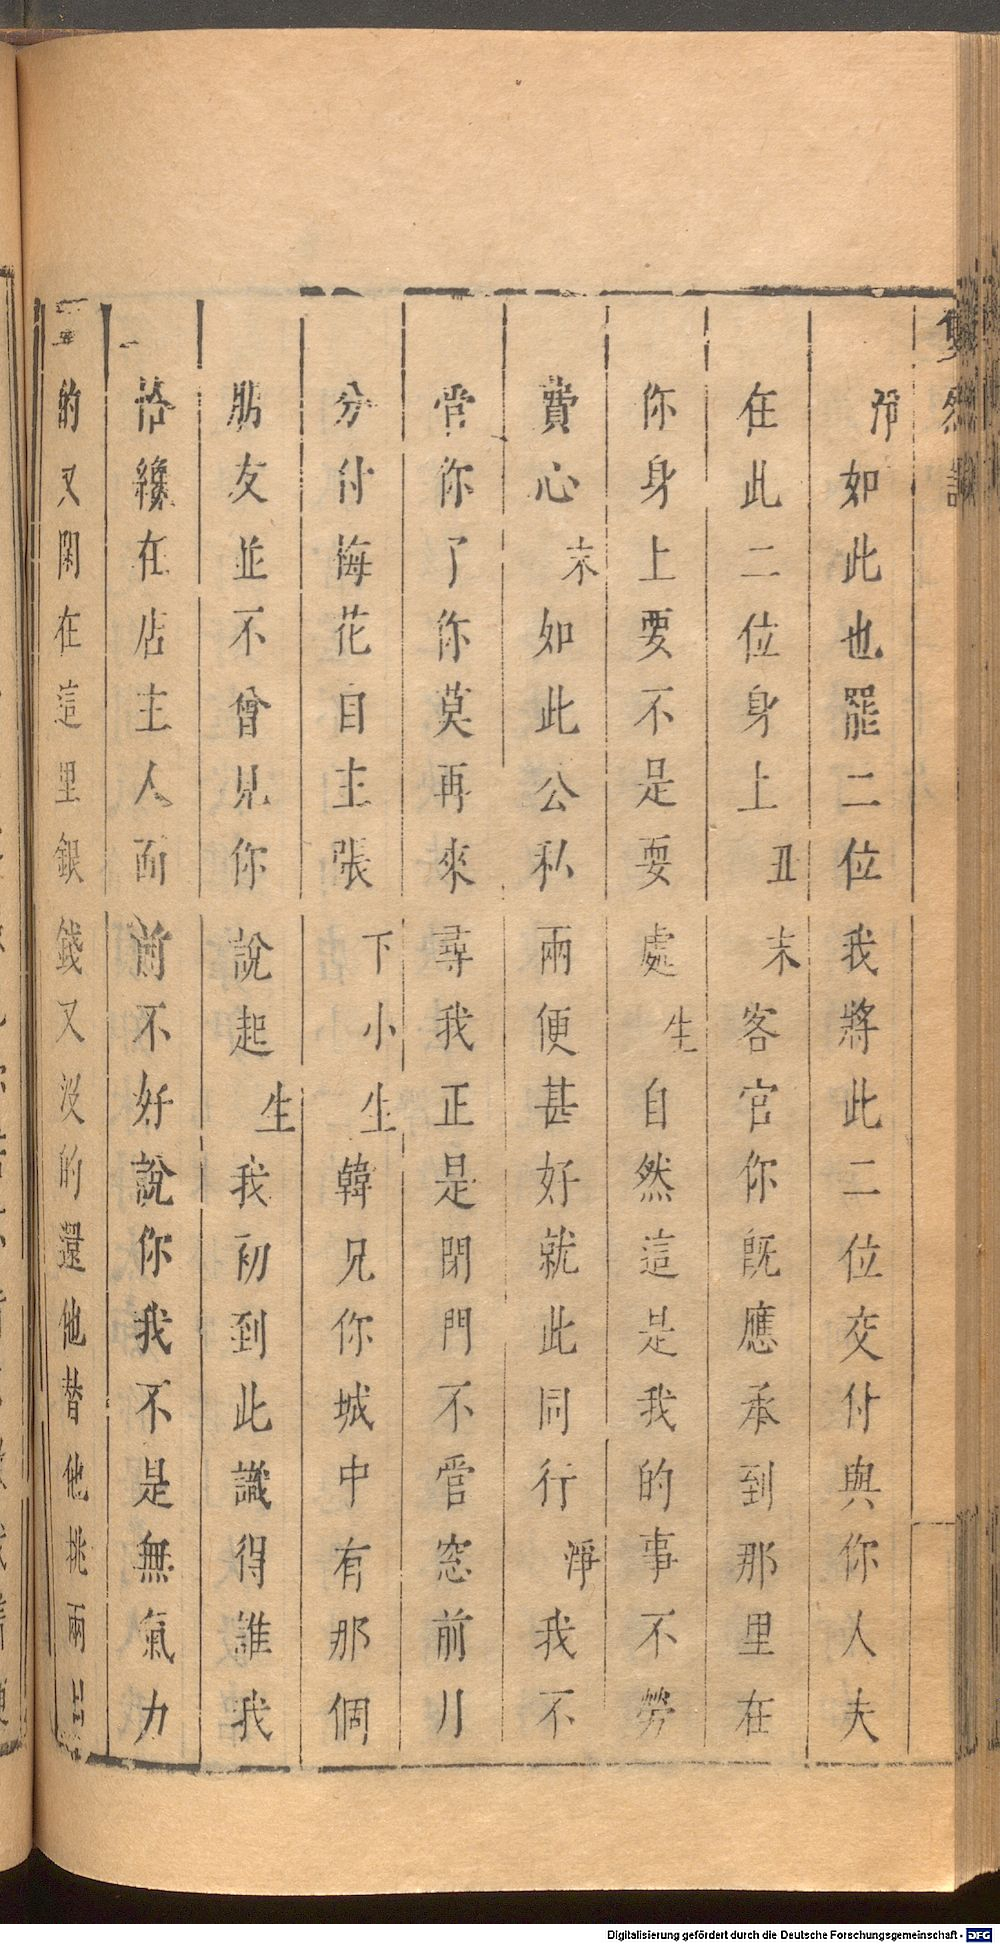 如此也罷二位我將此二位交付與你人夫
在此二位身上丑末客官你既應承到那里在
你身上要不是耍處生自然這是我的事不勞
費心末如此公私兩便甚好就此同行淨我不
管你了你莫再來尋我正是閉門不管窓前月
分付梅花自主張下小生韓兄你城中有那個
朋友並不曾見你說起生我初到此識得誰我
恰纔在店主人面前不好說你我不是無氣力
的又閑在這里銀錢又没的還他替他挑兩
Digitalisierung gefördert durch die Deutsche Forschungsgemeinschaft - DFG